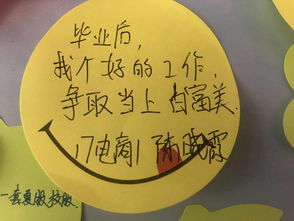 毕业后，
找个好的工作，
争取当上白富美.
17电商1 陈晓霞